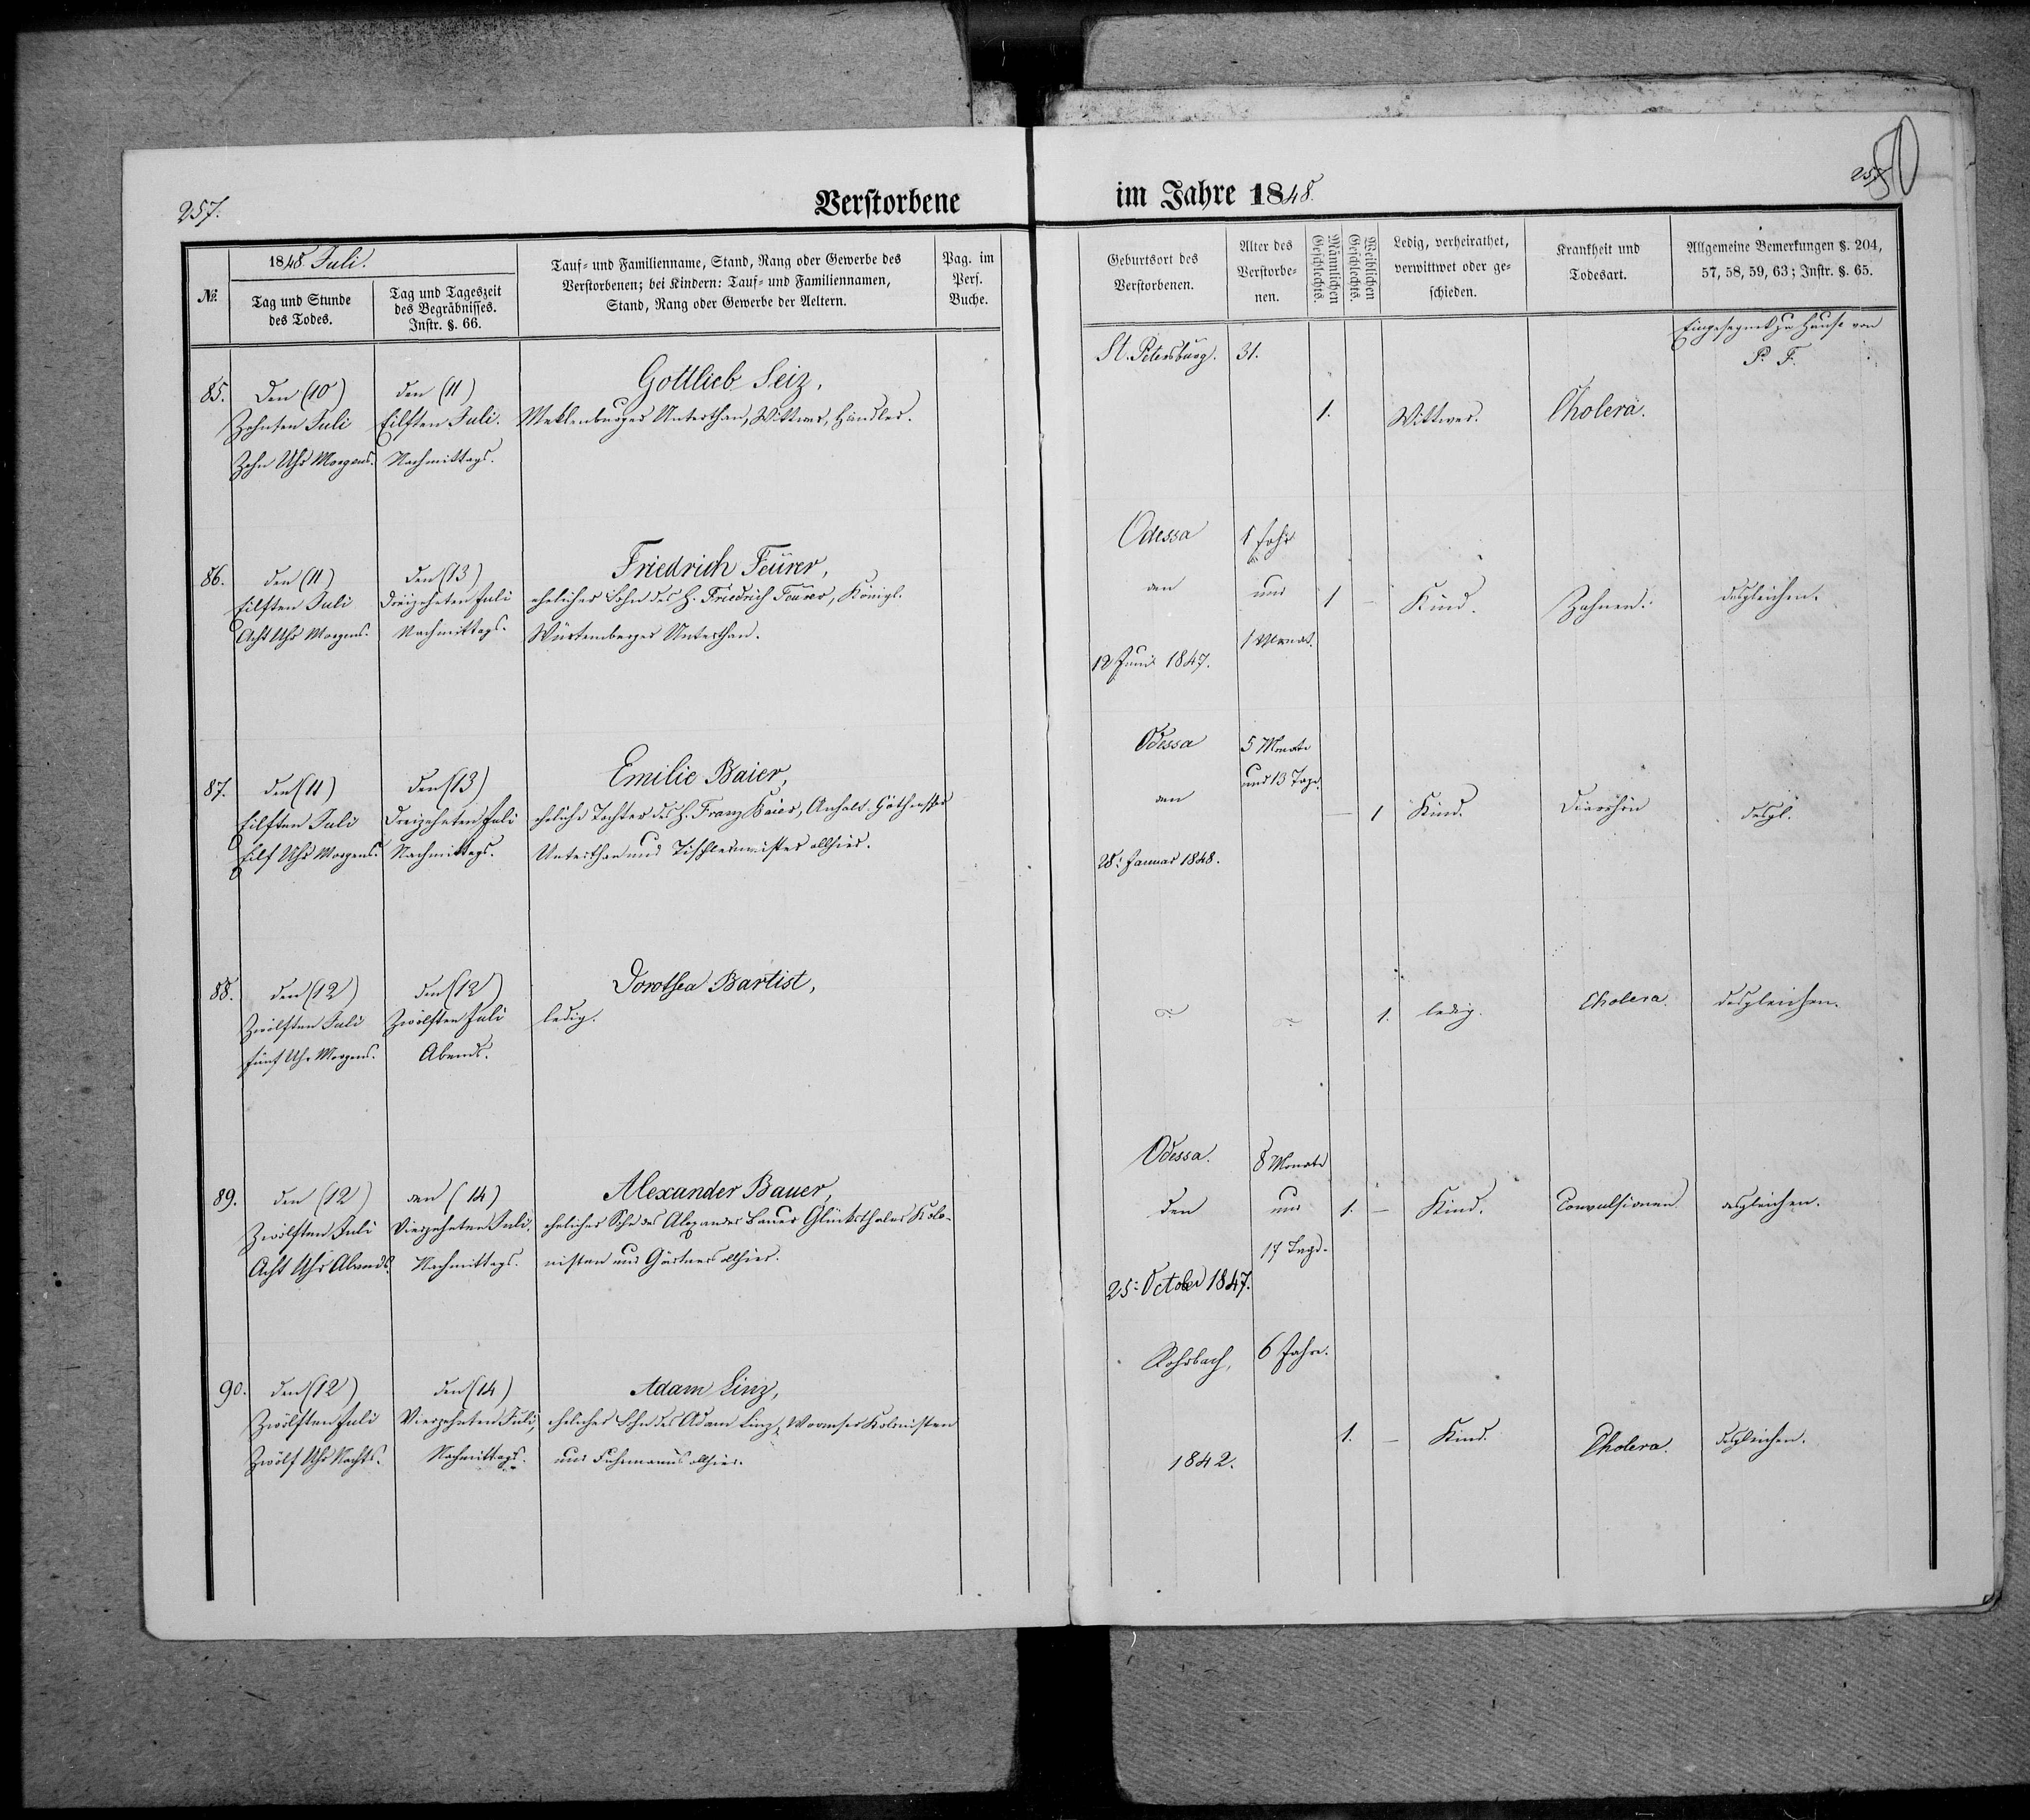 257.
Verstorbene
im Jahre 1848.
257
50
№.
1848. Juli.
Tag und Stunde
des Todes.
Tag und Tageszeit
des Begräbnisses.
Instr. §. 66.
Tauf- und Familienname, Stand, Rang oder Gewerbe des
Verstorbenen; bei Kindern: Tauf- und Familiennamen,
Stand, Rang oder Gewerbe der Aeltern.
Pag. im
Pers.
Buche.
Geburtsort des
Verstorbenen.
Alter des
Verstorbe-
nen.
Männlichen
Geschlechts.
Weiblichen
Geschlechts.
Ledig, verheirathet,
verwittwet oder ge-
schieden.
Krankheit und
Todesart.
Allgemeine Bemerkungen §. 204,
57, 58, 59, 63; Instr. §. 65.
85.
Den (10)
Zehnten Juli
Zehn Uhr Morgens.
den (11)
Eilften Juli.
Nachmittags.
Gottlieb Seiz,
Meklenburger Unterthan, Wittwer, Händler.
St. Petersburg.
31.
1.
Wittwer.
Cholera.
Eingesegnet zu Hause von
P. F.
86.
den (11)
Eilften Juli
Acht Uhr Morgens.
den (13)
Dreizehnten Juli
Nachmittags.
Friedrich Feurer,
ehelicher Sohn des H. Friedrich Feurer, Königl.
Würtemberger Unterthan.
Odessa
den
12 Juni 1847.
1 Jahr
und
1 Monat.
1
–
Kind.
Zahnen.
desgleichen.
87.
den (11)
Eilften Juli
Eilf Uhr Morgens.
den (13)
Dreizehnten Juli
Nachmittags.
Emilie Baier,
eheliche Tochter des H. Franz Baier, Anhalt-Göthensher
Unterthan und Tischlermeister allhier.
Odessa
den
28: Januar 1848.
5 Monate
und 13 Tage.
–
1
Kind.
Diarrhöe
desgl.
88.
den (12)
Zwölften Juli
fünf Uhr Morgens.
den (12)
Zwölften Juli
Abends.
Dorothea Bartist,
ledig.
1.
ledig.
Cholera.
desgleichen.
89.
den (12)
Zwölften Juli
Acht Uhr Abends.
den (14)
Vierzehnten Juli.
Nachmittags.
Alexander Bauer,
ehelicher Sohn des Alexander Bauer Glücksthaler Kolo-
nisten und Gärtners allhier.
Odessa.
den
25: October 1847.
8 Monate
und
17 Tage.
1.
–
Kind.
Convulsionen
desgleichen.
90.
den (12)
Zwölften Juli
Zwölf Uhr Nachts.
den (14)
Vierzehnten Juli,
Nachmittags.
Adam Linz,
ehelicher Sohn des Adam Linz, Wormser Kolonisten
und Fuhrmanns allhier.
Rohrbach,
1842.
6 Jahre.
1.
–
Kind.
Cholera.
desgleichen.